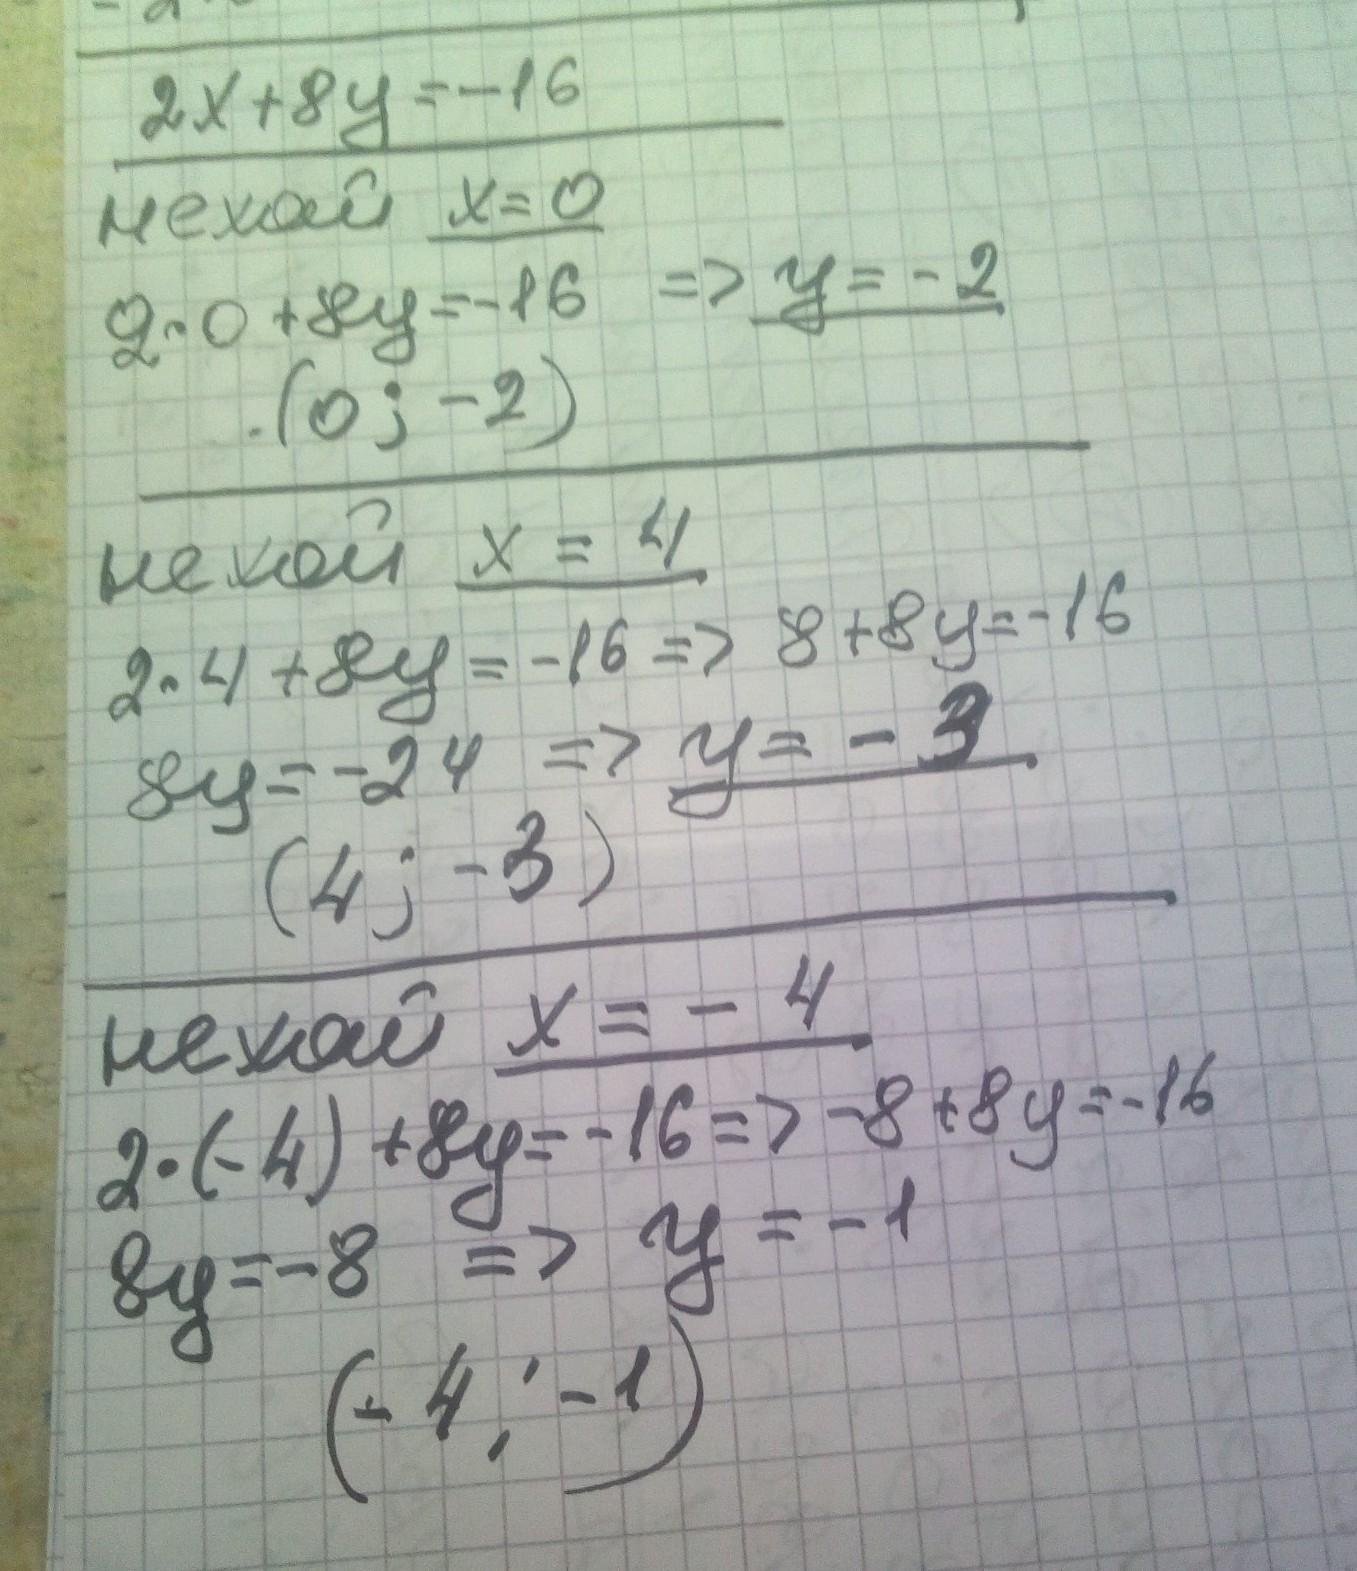 2x+8y=-16
нехай x=0
2·0+8y=-16 => y=-2
(0; -2)
нехай x=4
2·4+8y=-16 => 8+8y=-16
8y=-24 => y=-3
(4; -3)
нехай x=-4
2·(-4)+8y=-16 => -8+8y=-16
8y=-8 => y=-1
(-4; -1)